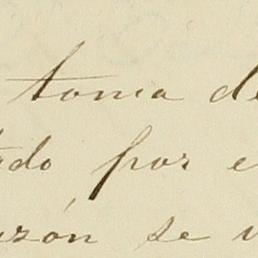 toma de
do por e
zón se